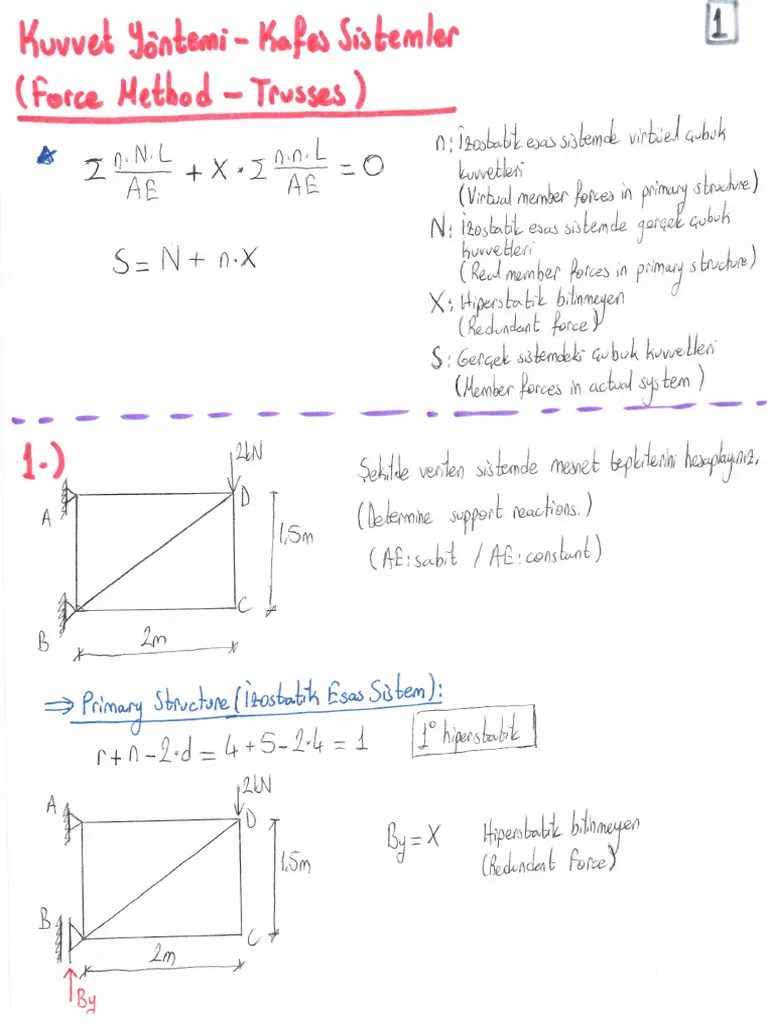 1
Kuvvet Yöntemi - Kafes Sistemler
(Force Method - Trusses)
Σ n.N.L / AE + X . Σ n.n.L / AE = 0
S = N + n.X
n: İzostatik esas sistemde virtüel çubuk
kuvvetleri
(Virtual member forces in primary structure)
N: İzostatik esas sistemde gerçek çubuk
kuvvetleri
(Real member forces in primary structure)
X: Hiperstatik bilinmeyen
(Redundant force)
S: Gerçek sistemdeki çubuk kuvvetleri
(Member forces in actual system)
1.)
2kN
A
D
1,5m
B
C
2m
Şekilde verilen sistemde mesnet tepkilerini hesaplayınız.
(Determine support reactions.)
(AE: sabit / AE: constant)
⇒ Primary Structure (İzostatik Esas Sistem):
r+n-2.d = 4+5-2.4 = 1
1° hiperstatik
2kN
A
D
1,5m
B
C
2m
By
By = X Hiperstatik bilinmeyen
(Redundant Force)